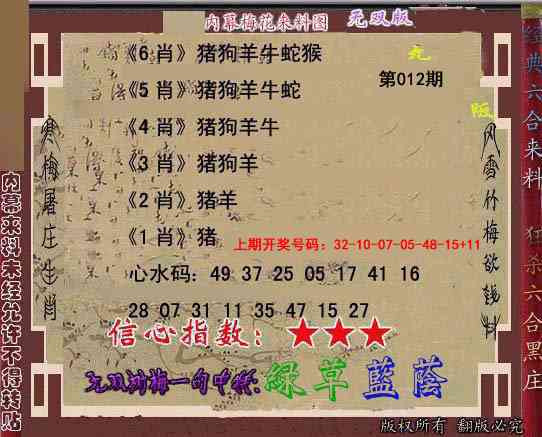 内幕梅花来料图 无双版
《6肖》猪狗羊牛蛇猴
第012期
《5肖》猪狗羊牛蛇
《4肖》猪狗羊牛
《3肖》猪狗羊
《2肖》猪羊
《1肖》猪
上期开奖号码：32-10-07-05-48-15+11
心水码：49 37 25 05 17 41 16
28 07 31 11 35 47 15 27
信心指数：★★★
无双鸿梅一句中特:绿草蓝荫
版权所有 翻版必究
寒梅屠庄生肖
风雪竹梅欲钱料
内幕来料未经允许不得转贴
经典六合来料
狂杀六合黑庄